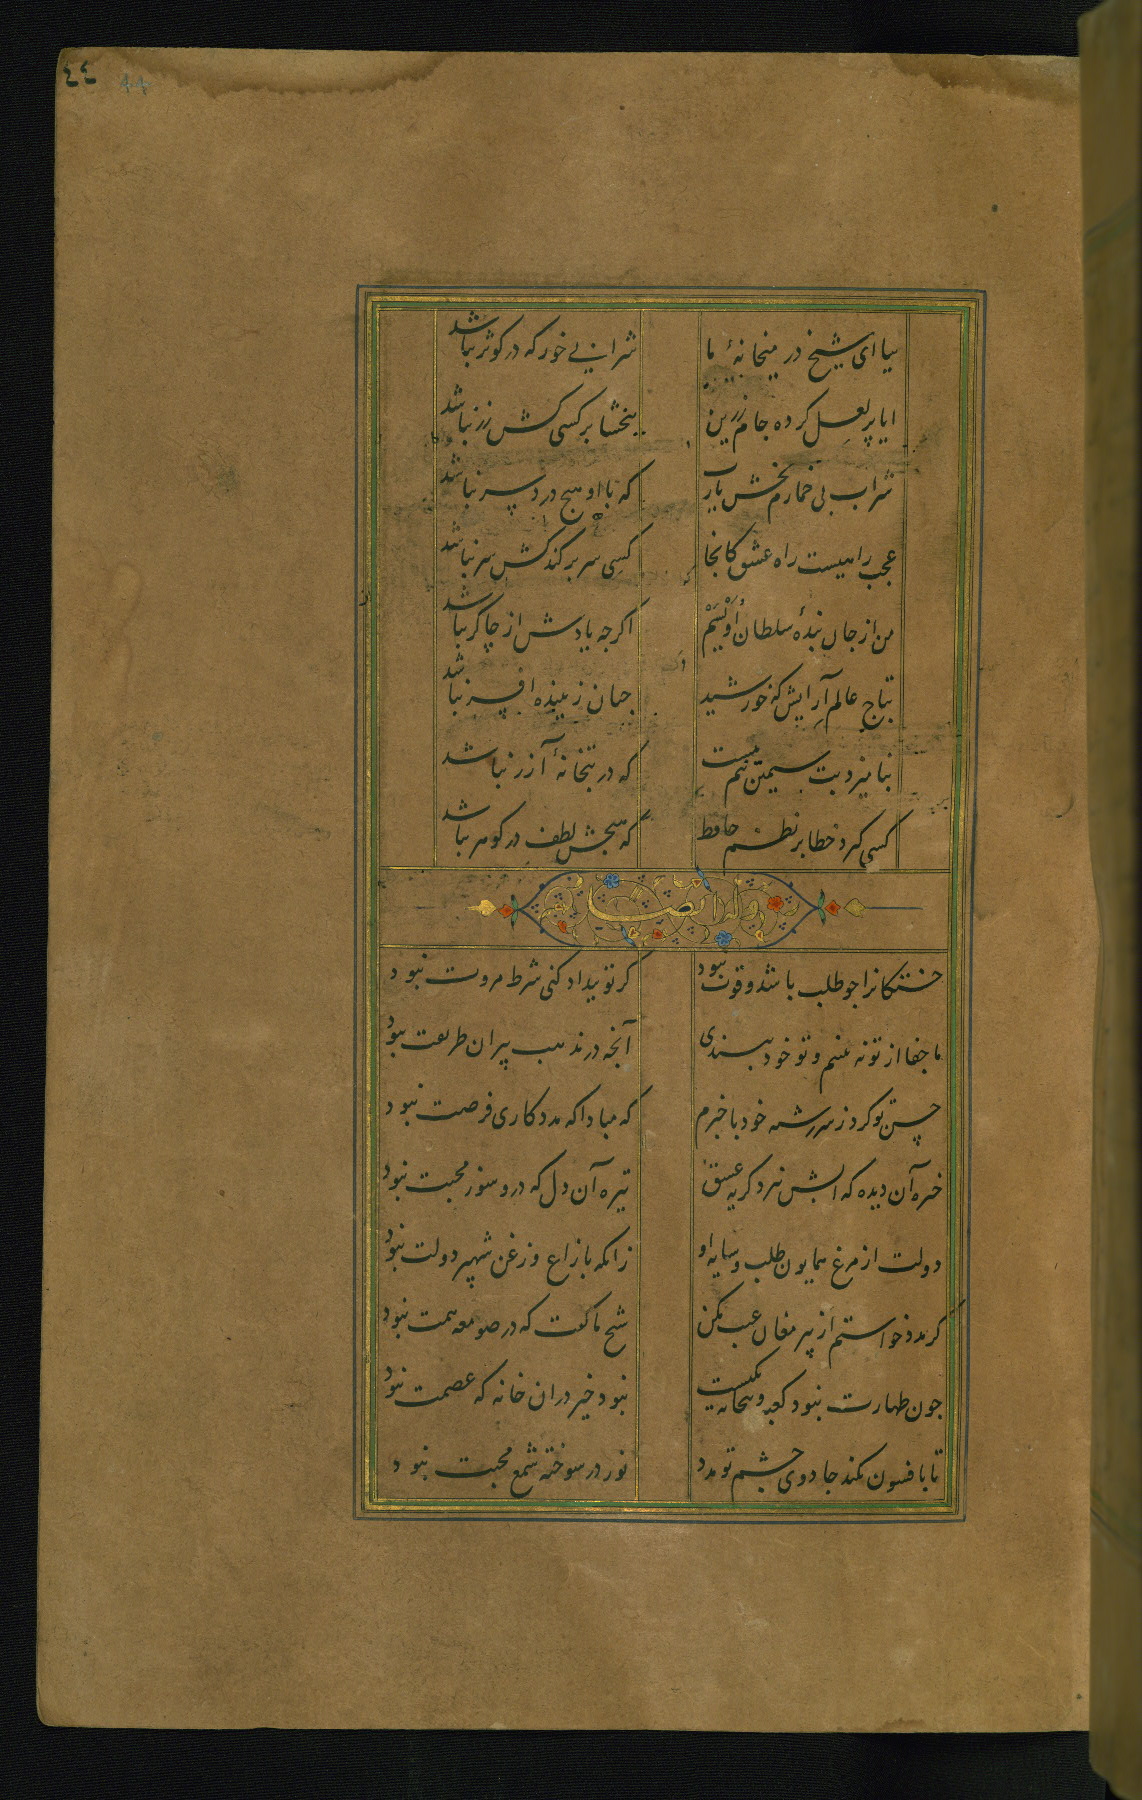 ٤٤
بیا ای شیخ در میخانهٔ ما
شرابی خور که در کوثر نباشد
ایا پر لعل کرده جام زرین
ببخشا بر کسی کش زر نباشد
شراب بی خمارم بخش یا رب
که با او هیچ درد سر نباشد
عجب راهیست راه عشق کانجا
کسی سر بر کند کش سر نباشد
من از جان بندهٔ سلطان اُوَیْسَمْ
اگر چه یادش از چاکر نباشد
بتاج عالم آرایش که خورشید
جهان زیبنده افسر نباشد
بنامیزد بت سیمین تنم هست
که در بتخانهٔ آزر نباشد
کسی کیرد خطا بر نظم حافظ
که هیچش لطف در کوهر نباشد
وله ایضا
خستکانرا جو طلب باشد و قوت نبود
کر تو بیداد کنی شرط مروت نبود
ما جفا از تو ندیدیم و تو خود نپسندی
آنچه در مذهب پیران طریقت نبود
که مبادا که مددکاری فرصت نبود
خیره آن دیده که آبش نبرد کریه عشق
تیره آن دل که درو سوز محبت نبود
دولت از مرغ همایون طلب و سایه او
زانکه با زاغ و زغن شهپر دولت نبود
کر مدد خواستم از پیر مغان عیب مکن
شیخ ما کفت که در صومعه همت نبود
جون طهارت نبود کعبه و بتخانه یکیست
نبود خیر در آن خانه که عصمت نبود
تا بافسون نکند جادوی چشم تو مدد
نور در سوخته شمع محبت نبود